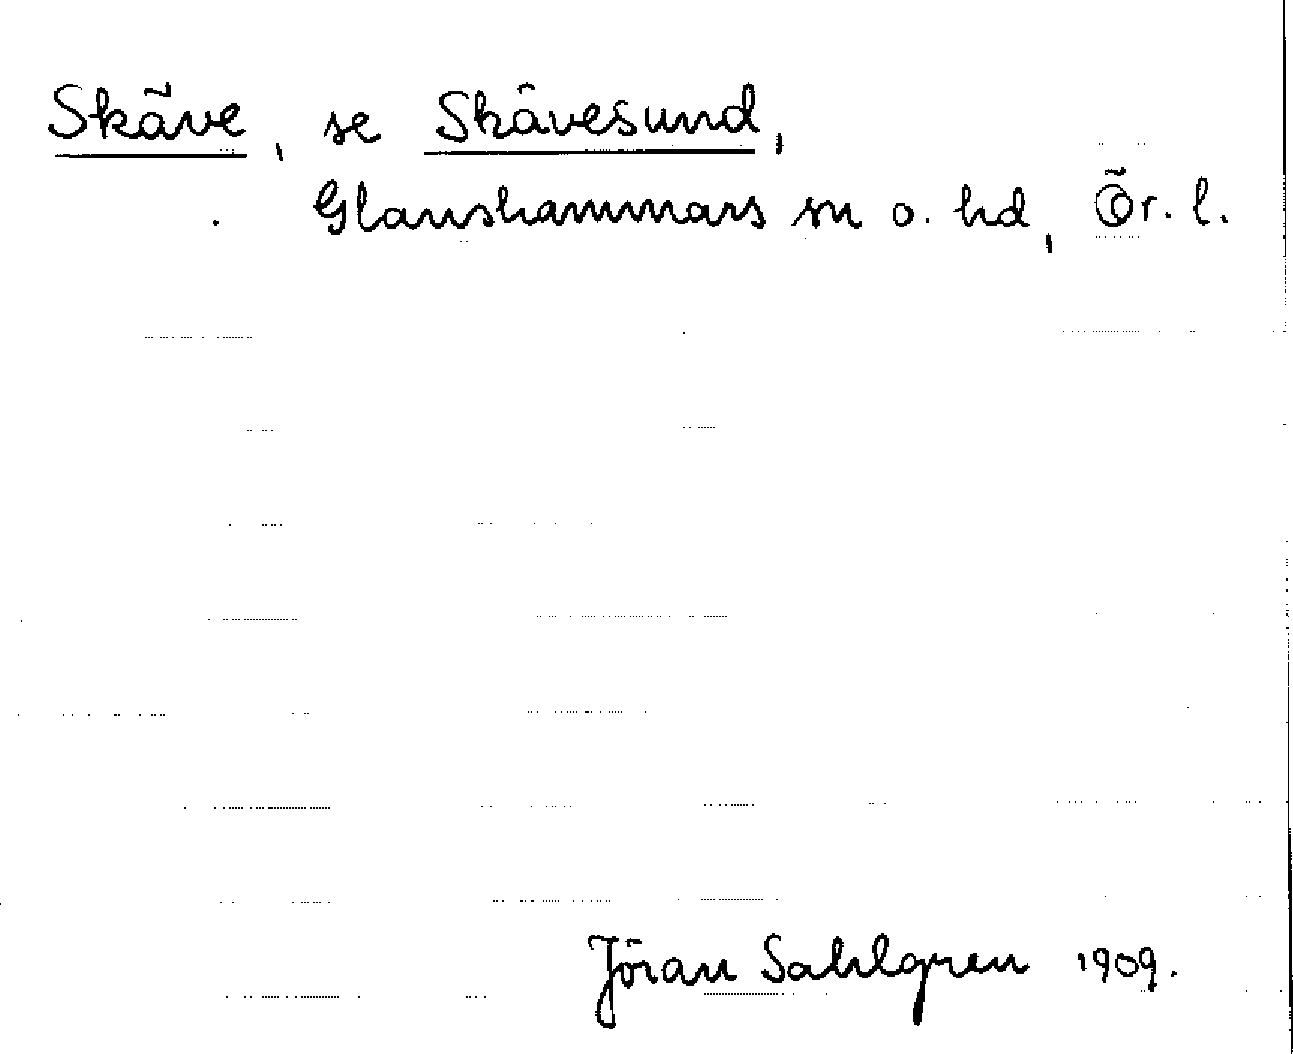 Skäve, se Skävesund,
Glanshammars sn o. hd, Ör. l.
Jöran Sahlgren 1909.